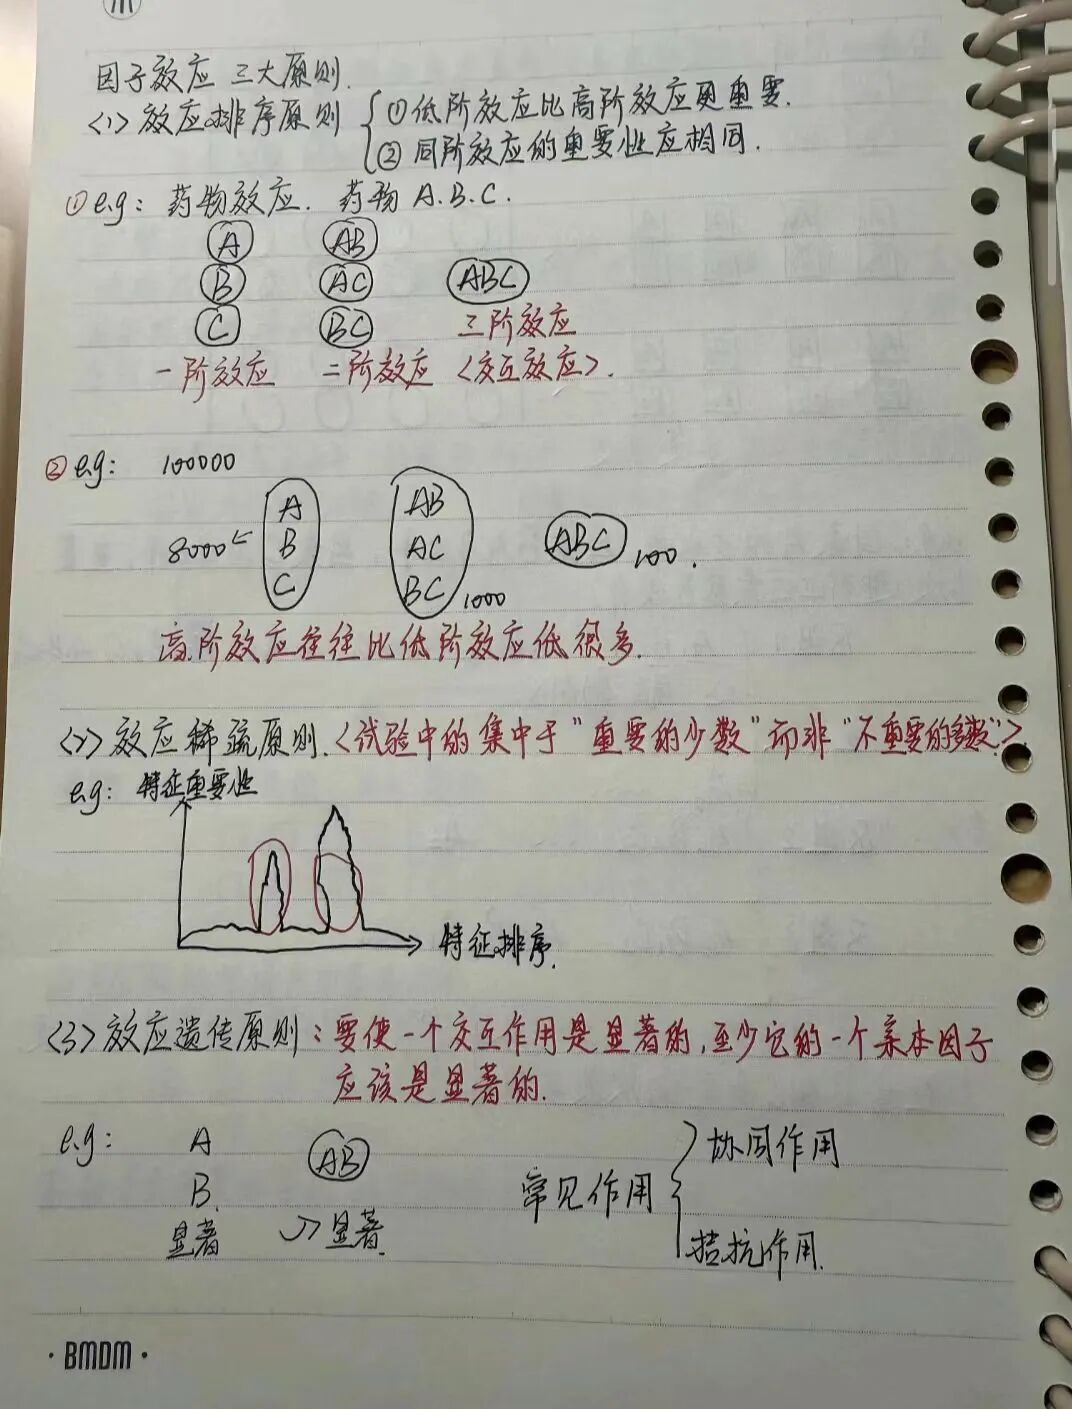 因子效应 三大原则.
<1> 效应排序原则 { ①低阶效应比高阶效应更重要.
②同阶效应的重要性应相同.
①e.g: 药物效应. 药物 A.B.C.
A AB
B AC ABC
C BC 三阶效应
一阶效应 二阶效应 <交互效应>.
②e.g: 100000
A AB
8000← B AC ABC 100.
C BC 1000
高阶效应往往比低阶效应低很多.
<2> 效应稀疏原则.<试验中的集中于"重要的少数"而非"不重要的多数">
e.g: 特征重要性
特征排序.
<3> 效应遗传原则: 要使一个交互作用是显著的,至少它的一个亲本因子
应该是显著的.
e.g: A AB 协同作用
B 常见作用
显著 显著. 拮抗作用.
·BMDM·